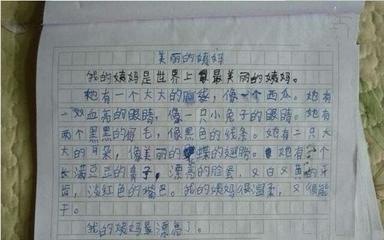 美丽的姨妈
我的姨妈是世界上最最美丽的姨妈。
她有一个大大的脑袋，像一个西瓜。她有
一双血亮的眼睛，像一只小兔子的眼睛。她有
两个黑黑的眉毛，像黑色的线条。她有二只大
大的耳朵，像美丽的蝴蝶的翅膀。她有一个
长满豆豆的鼻子，漂亮的脸蛋，又白又黄的牙
齿，淡红色的嘴巴。我的姨妈很温柔，又很能
干。
我的姨妈最漂亮了。